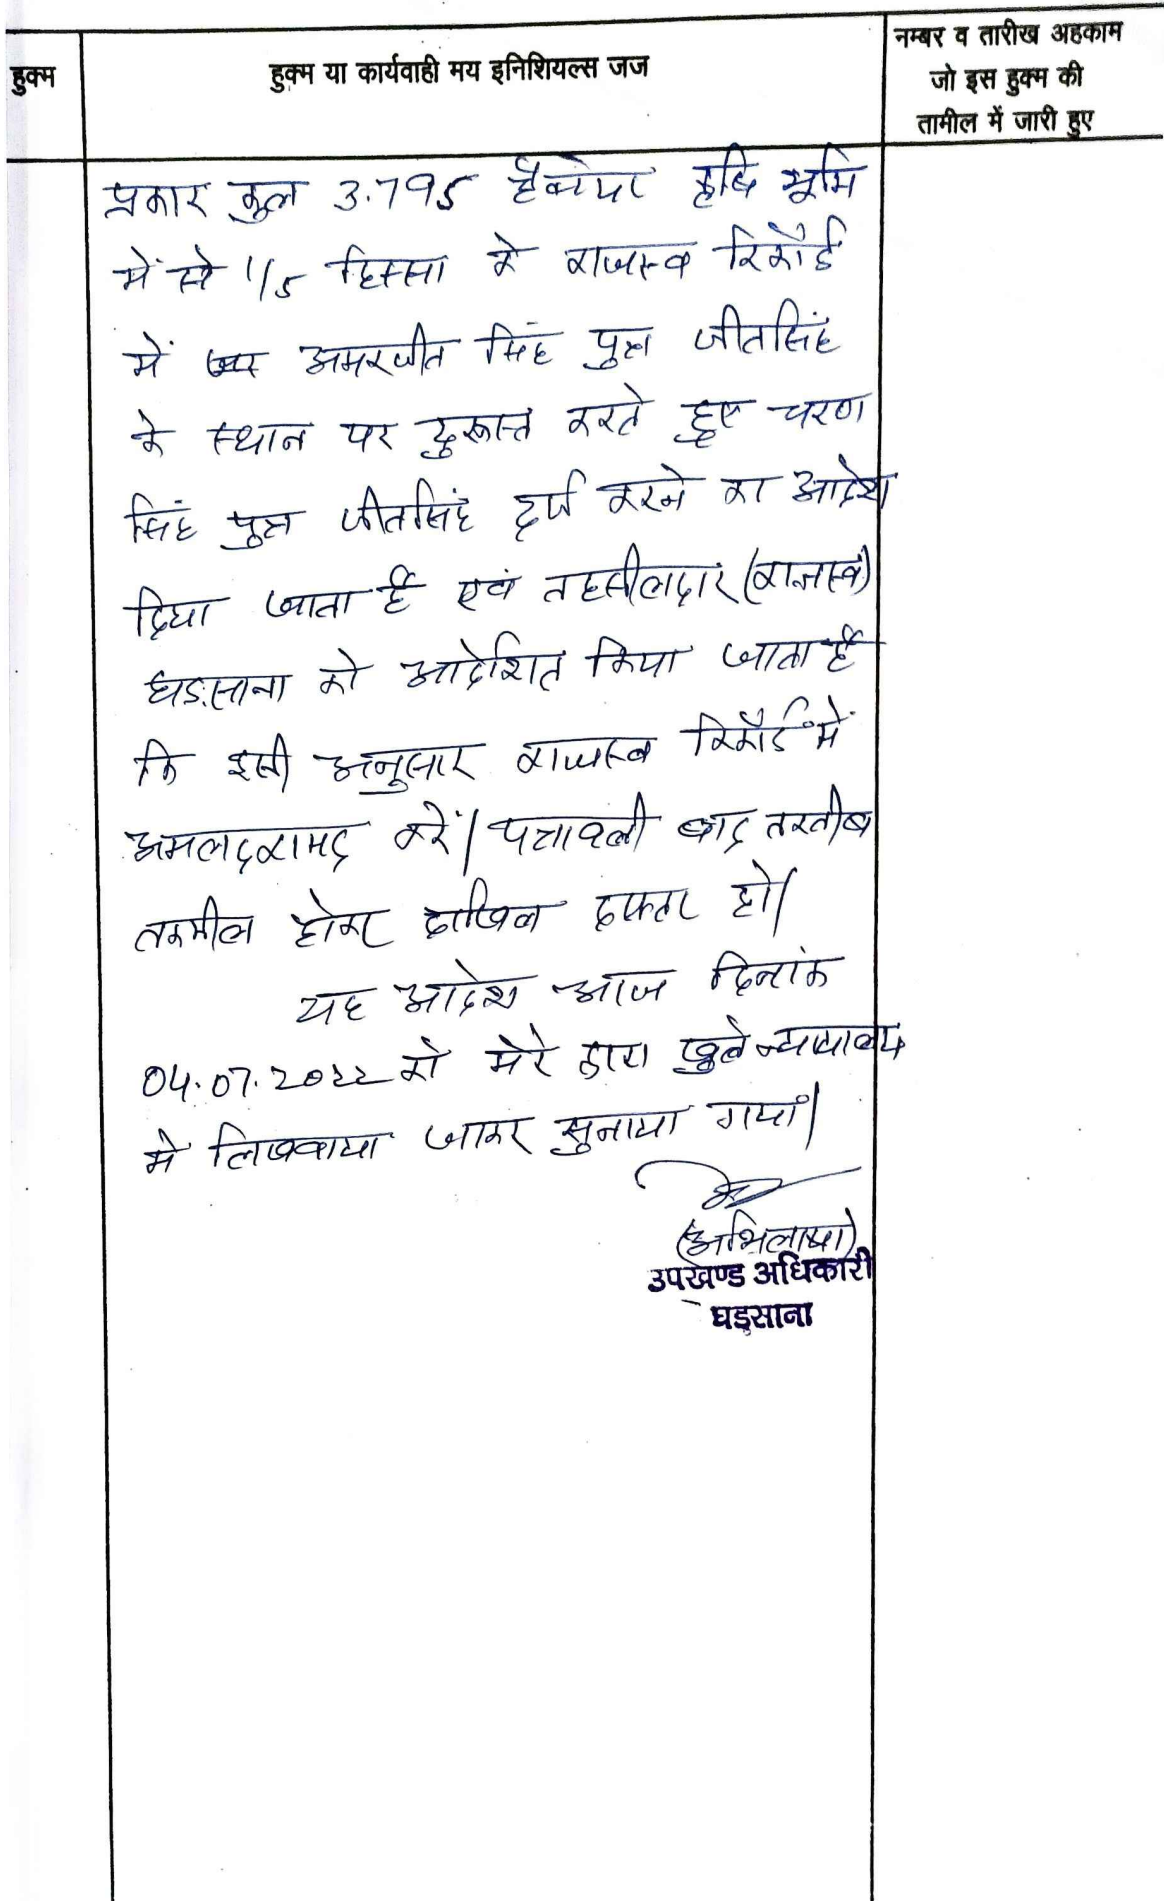 हुक्म
हुक्म या कार्यवाही मय इनिशियल्स जज
नम्बर व तारीख अहकाम
जो इस हुक्म की
तामील में जारी हुए
प्रकार कुल 3.795 हैक्टेयर कृषि भूमि
में से 1/5 हिस्सा के राजस्व रिकॉर्ड
में अमरजीत सिंह पुत्र जीतसिंह
के स्थान पर दुरूस्त करते हुए चरण
सिंह पुत्र जीतसिंह दर्ज करने का आदेश
दिया जाता है एवं तहसीलदार (राजस्व)
घड़साना को आदेशित किया जाता है
कि इसी अनुसार राजस्व रिकॉर्ड में
अमलदरामद करें। पत्रावली बाद तरतीब
तकमील होकर दाखिल दफ्तर हो।
यह आदेश आज दिनांक
04.07.2022 को मेरे द्वारा खुले न्यायालय
मे लिखवाया जाकर सुनाया गया।
(अभिलाषा)
उपखण्ड अधिकारी
घड़साना